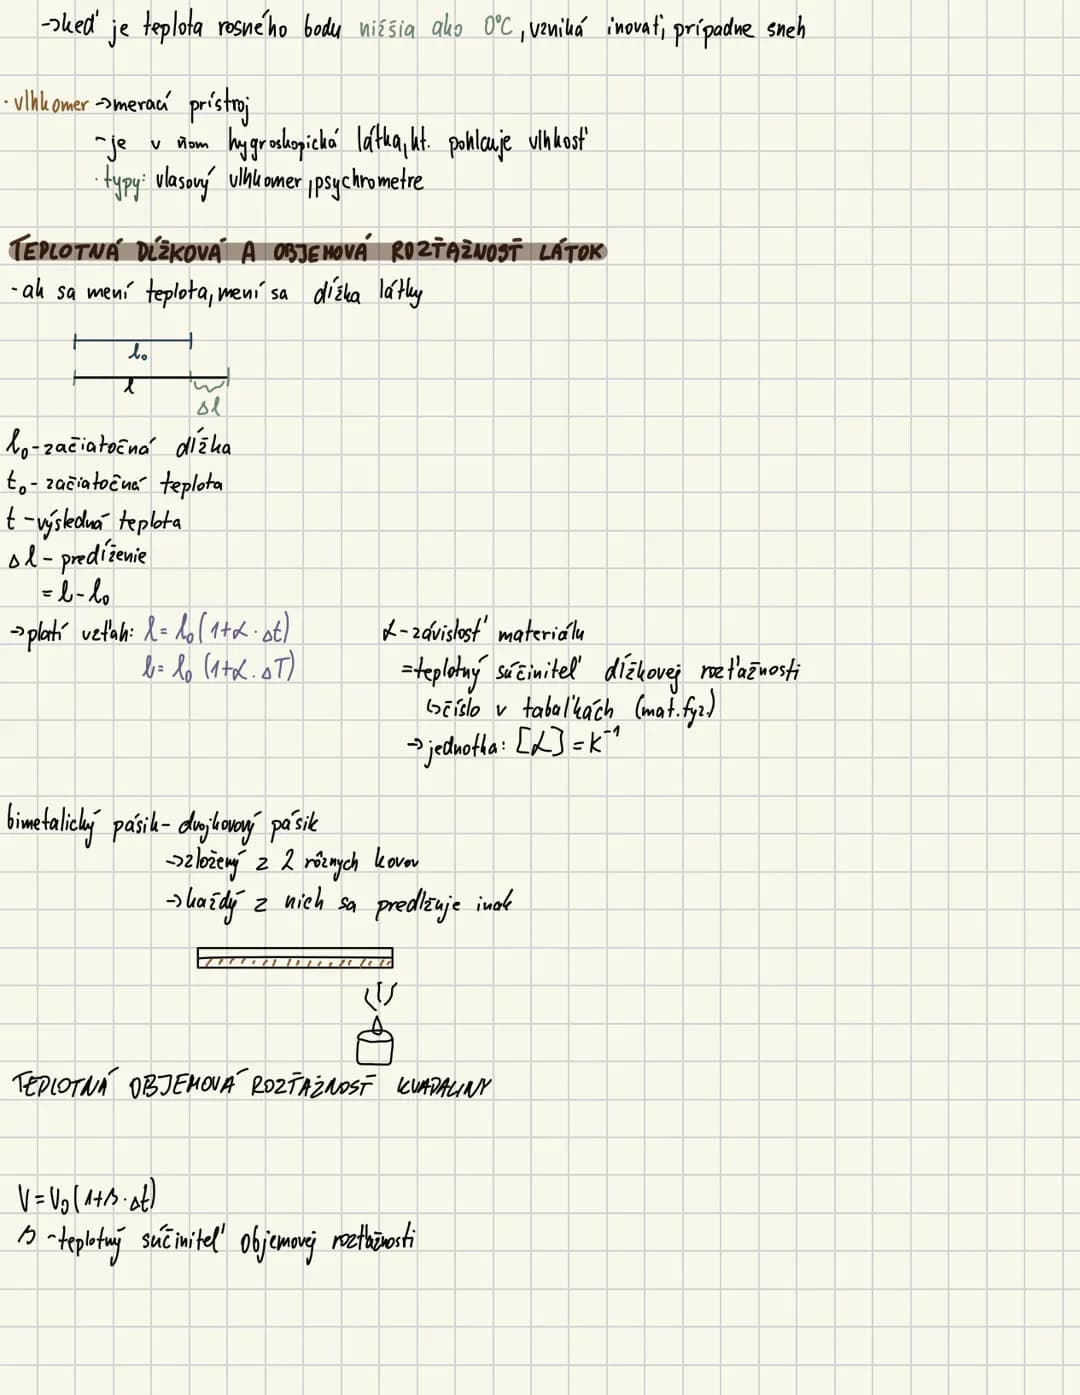 →keď je teplota rosného bodu nižšia ako 0°C, vzniká inovať, prípadne sneh
· vlhkomer → merací prístroj
- je v ňom hygroskopická látka, kt. pohlcuje vlhkosť
· typy: vlasový vlhkomer, psychrometre
TEPLOTNÁ DĹŽKOVÁ A OBJEMOVÁ ROZŤAŽNOSŤ LÁTOK
- ak sa mení teplota, mení sa dĺžka látky
l₀
l
Δl
l₀ - začiatočná dĺžka
t₀ - začiatočná teplota
t - výsledná teplota
Δl - predĺženie
= l - l₀
→ platí vzťah: l = l₀(1+α·Δt)
l = l₀ (1+α.ΔT)
α - závislosť materiálu
= teplotný súčiniteľ dĺžkovej rozťažnosti
↳ číslo v tabaľkách (mat.fyz.)
→ jednotka: [α] = K⁻¹
bimetalický pásik - dvojkovový pásik
→ zložený z 2 rôznych kovov
→ každý z nich sa predlžuje inak
TEPLOTNÁ OBJEMOVÁ ROZŤAŽNOSŤ KVAPALINY
V = V₀(1+β·Δt)
β - teplotný súčiniteľ objemovej rozťažnosti